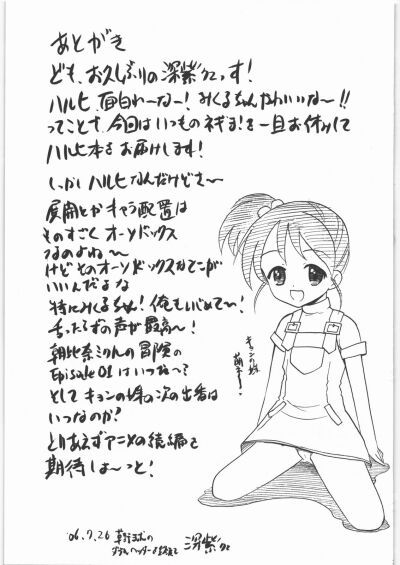 あとがき
ども、お久しぶりの深紫でっす!
ハルヒ、面白れーなー!みくるちゃんかわいいな〜!!
ってことで、今回はいつものネギま!を一旦お休みして
ハルヒ本をお届けします!
しっかしハルヒなんだけどさ〜
展開とかキャラ配置は
ものすごくオーソドックス
なのよね〜
けどそのオーソドックスなとこが
いいんだよな
特にみくるちゃん!俺もいじめて〜!
の声が最高〜!
朝比奈ミクルの冒険の
Episode 01はいつな〜?
そしてキョンの妹の次の出番は
いつなのか?
とりあえずアニメの続編を
期待しよ〜っと!
キョンの妹
萌え〜
'06.7.26
深紫